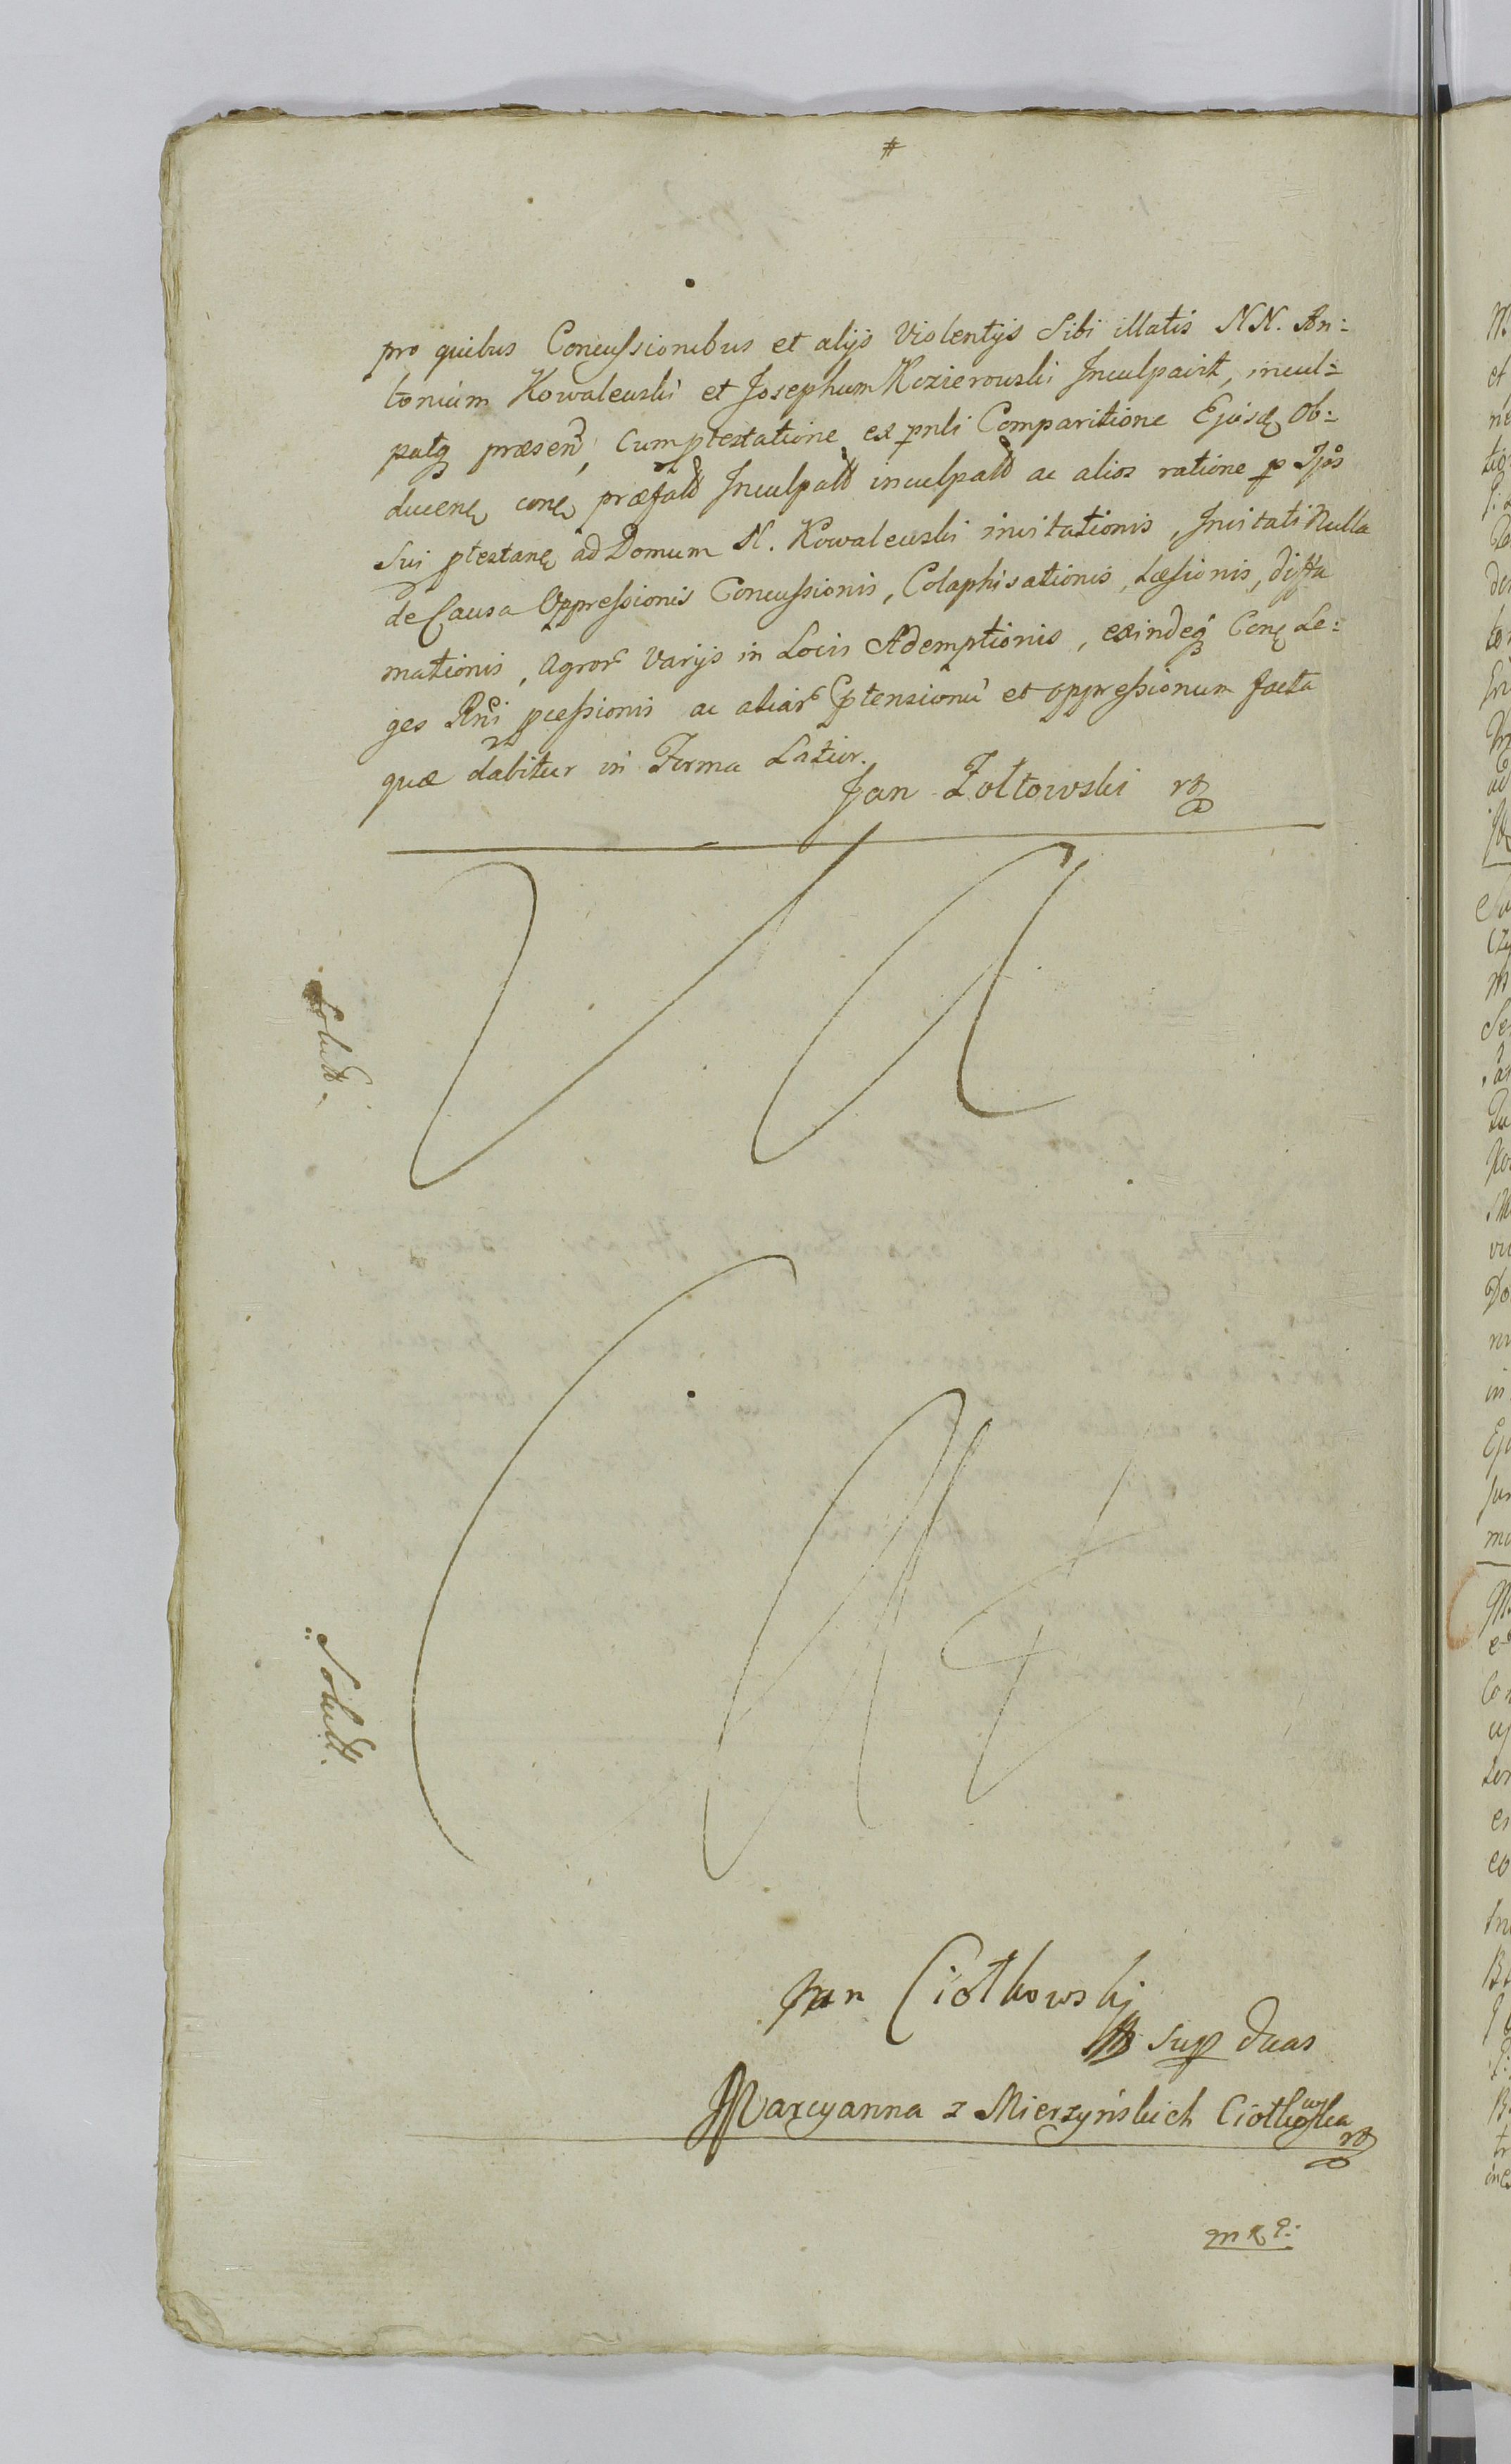 pro quibus Concussionibus et alijs Violentijs Sibi illatis NN. An:
tonium Kowalewski et Josephum Kozierowski Inculpavit, incul:
patq præsen, Cum ptestatione ex pnli Comparitione Ejusd Ob:
ducen, con præfatt Inculpatt inculpatt ac alios ratione p Ipos
Sui ptestan ad Domum N. Kowalewski invitationis, Invitati Nulla
de Causa Oppressionis Concussionis, Colaphisationis, Læsionis, diffa
mationis, agror Varijs in Locis Ademptionis, exindeq Con Le:
ges Rni pcessionis ac aliar Ptensionu et oppressionum facta
quæ dabitur in Forma Latior.
Jan Żołtowski
Solutt.
Solutt.
Jan Ciołkowskj
sup duas
Marcyanna z Mierzyńskich Ciołkowska